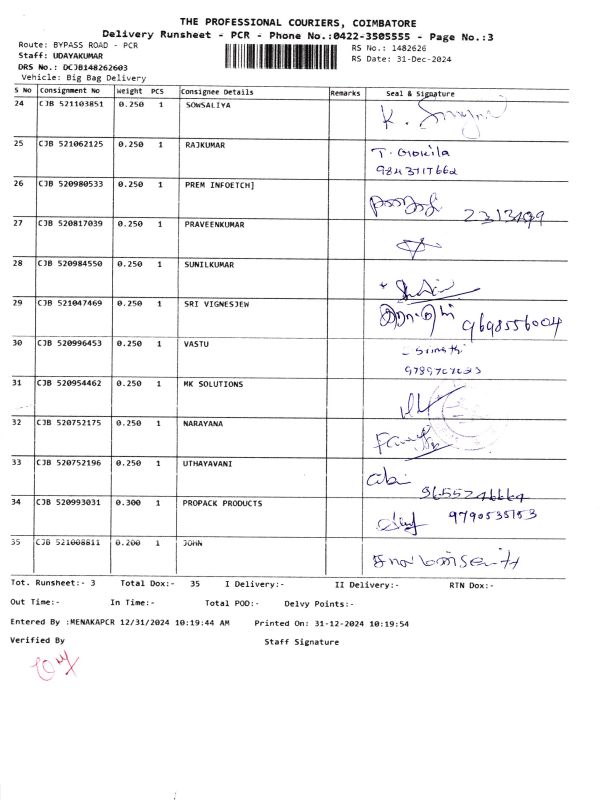 THE PROFESSIONAL COURIERS, COIMBATORE
Delivery Runsheet - PCR - Phone No.:0422-3505555 - Page No.:3
Route: BYPASS ROAD - PCR
RS No.: 1482626
Staff: UDAYAKUMAR
RS Date: 31-Dec-2024
DRS No.: DCJB148262603
Vehicle: Big Bag Delivery
S No Consignment No Weight PCS Consignee Details Remarks Seal & Signature
24 CJB 521103851 0.250 1 SOWSALIYA
25 CJB 521062125 0.250 1 RAJKUMAR T. Gokila
26 CJB 520980533 0.250 1 PREM INFOETCH]
27 CJB 520817039 0.250 1 PRAVEENKUMAR
28 CJB 520984550 0.250 1 SUNILKUMAR
29 CJB 521047469 0.250 1 SRI VIGNESJEW 9698556004
30 CJB 520996453 0.250 1 VASTU
31 CJB 520954462 0.250 1 MK SOLUTIONS
32 CJB 520752175 0.250 1 NARAYANA
33 CJB 520752196 0.250 1 UTHAYAVANI
34 CJB 520993031 0.300 1 PROPACK PRODUCTS 9790535153
35 CJB 521008811 0.200 1 JOHN
Tot. Runsheet:- 3 Total Dox:- 35 I Delivery:- II Delivery:- RTN Dox:-
Out Time:- In Time:- Total POD:- Delvy Points:-
Entered By :MENAKAPCR 12/31/2024 10:19:44 AM Printed On: 31-12-2024 10:19:54
Verified By Staff Signature